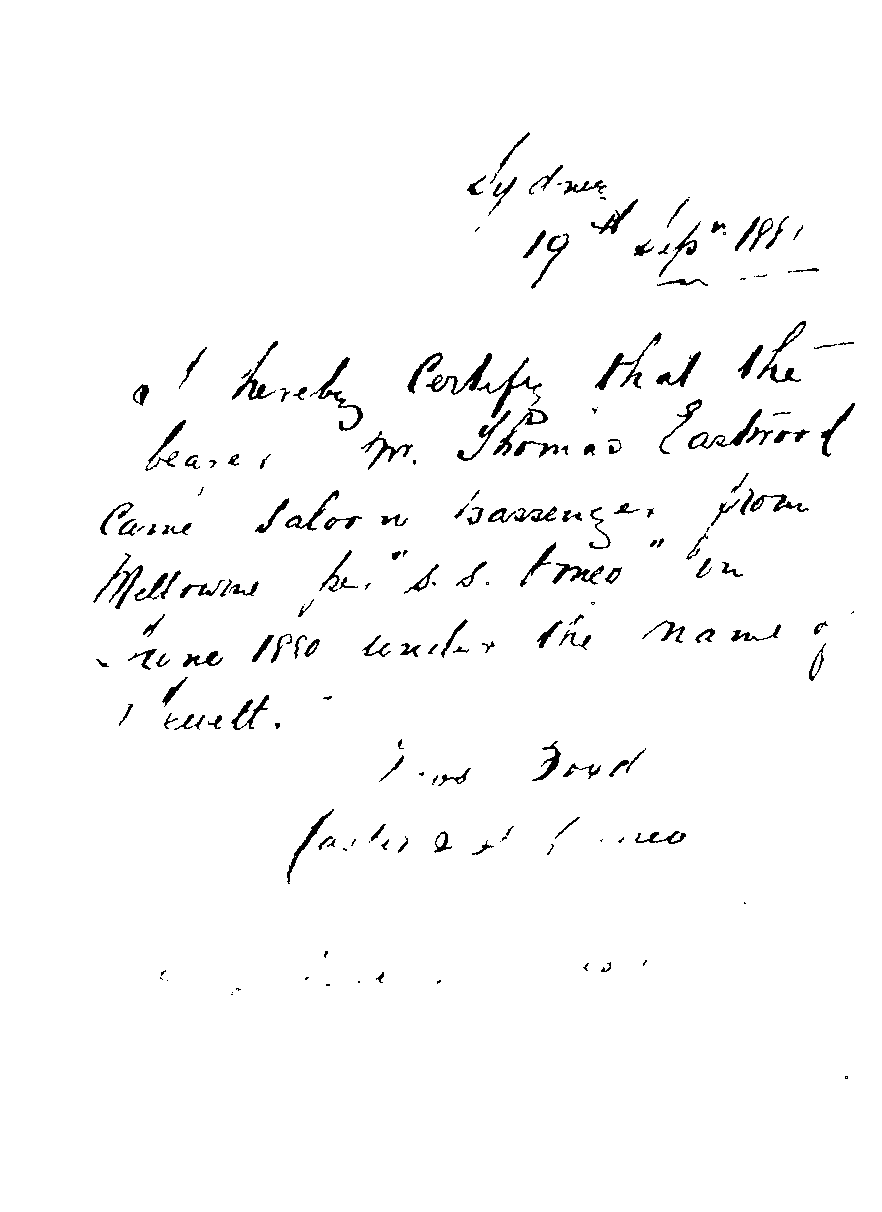 Sydney
19th Sepr. 1881
I hereby Certify that the
bearer Mr. Thomas Eastwood
Came Saloon passenger from
Melbourne per "S.S. " in
June 1880 under the name of

Ford